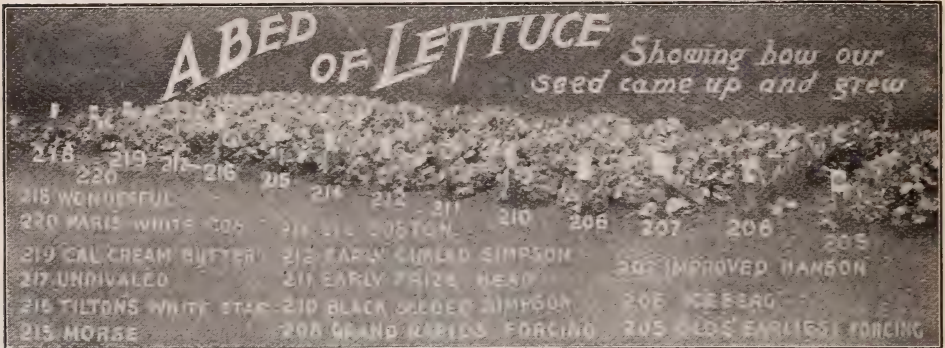 A BED OF LETTUCE
Showing how our
seed came up and grew
218 219 217 216 215 214 212 211 210 208 207 206 205
220
218 WONDERFUL
220 PARIS WHITE COS
219 CAL CREAM BUTTER
217 UNRIVALED
216 TILTON'S WHITE STAR
215 MORSE
214 BOSTON
212 EARLY CURLED SIMPSON
211 EARLY PRIZE HEAD
210 BLACK SEEDED SIMPSON
208 GRAND RAPIDS FORCING
207 IMPROVED HANSON
206 ICEBERG
205 OLDS' EARLIEST FORCING